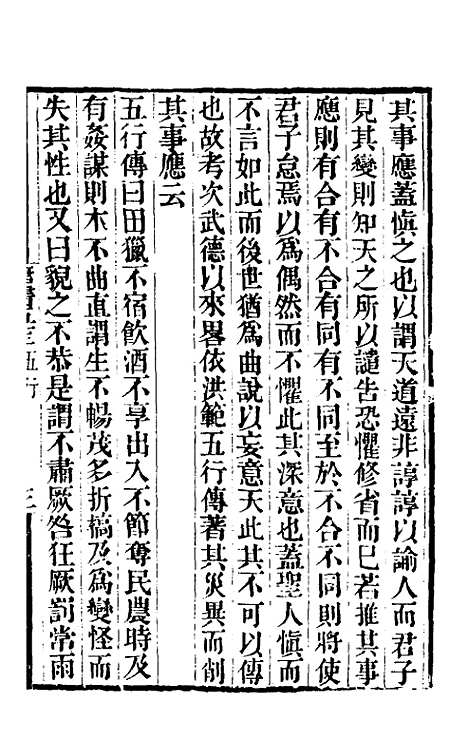 其事應蓋慎之也以謂天道遠非諄諄以諭人而君子
見其變則知天之所以譴告恐懼修省而已若推其事
應則有合有不合有同有不同至於不合不同則將使
君子怠焉以爲偶然而不懼此其深意也蓋聖人慎而
不言如此而後世猶爲曲說以妄意天此其不可以傳
也故考次武德以來畧依洪範五行傳著其災異而削
其事應云
五行傳曰田獵不宿飲酒不享出入不節奪民農時及
有姦謀則木不曲直謂生不暢茂多折槁及爲變怪而
失其性也又曰貌之不恭是謂不肅厥咎狂厥罰常雨
五行
三